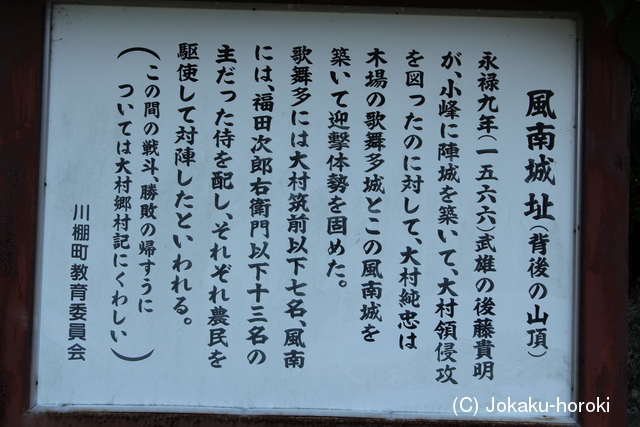 風南城址(背後の山頂)
永禄九年(一五六六)武雄の後藤貴明
が、小峰に陣城を築いて、大村領侵攻
を図ったのに対して、大村純忠は
木場の歌舞多城とこの風南城を
築いて迎撃体勢を固めた。
歌舞多には大村筑前以下七名、風南
には、福田次郎右衛門以下十三名の
主だった侍を配し、それぞれ農民を
駆使して対陣したといわれる。
(この間の戦斗、勝敗の帰すうに
ついては大村郷村記にくわしい)
川棚町教育委員会
(C) Jokaku-horoki